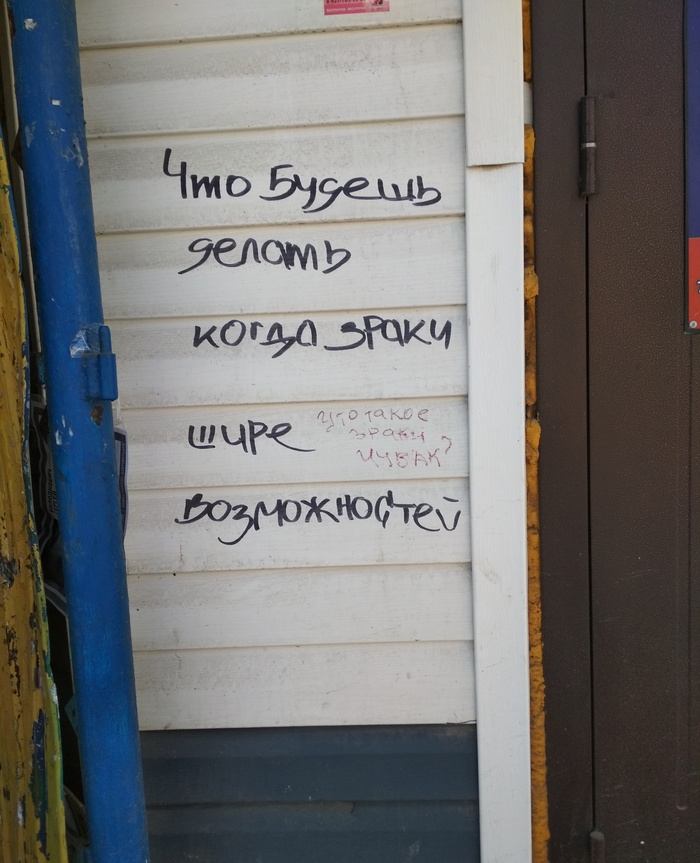 Что будешь
делать
когда зраки
шире
что такое
зраки
чувак?
возможностей